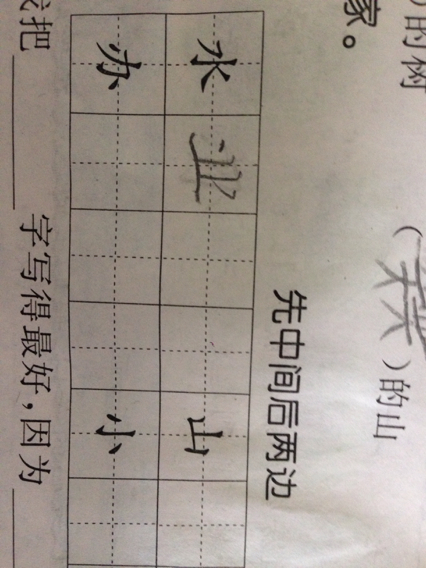 )的树 ( )的山
家。
先中间后两边
水 业 山
办 小
把 字写得最好,因为